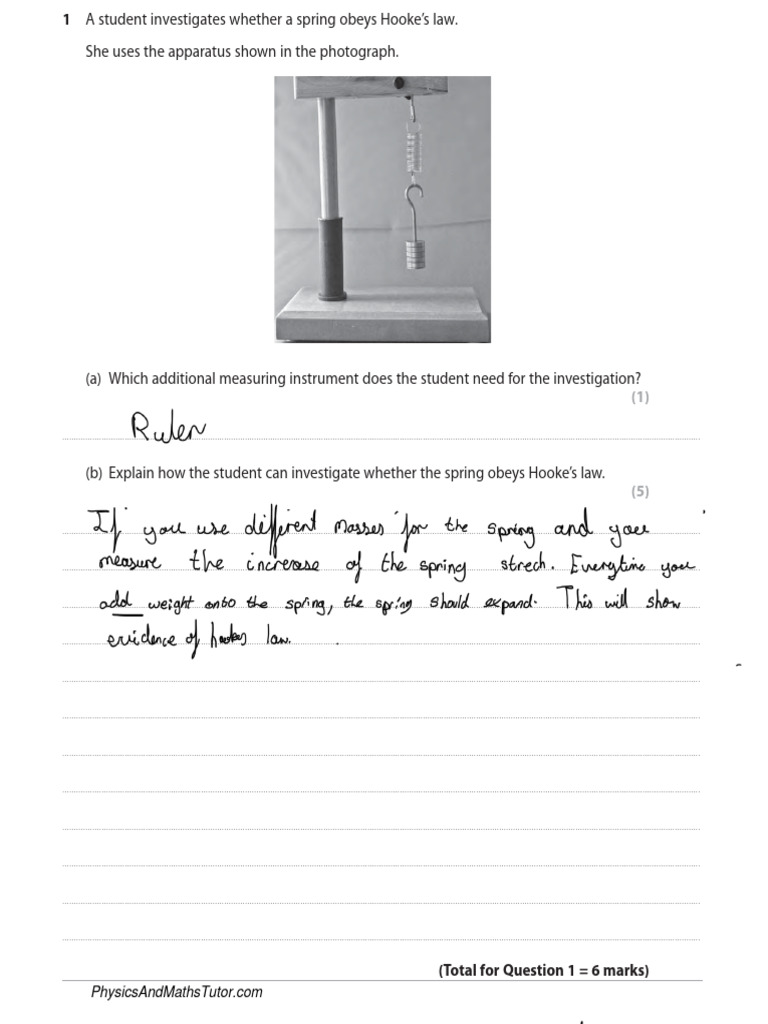 1 A student investigates whether a spring obeys Hooke's law.
She uses the apparatus shown in the photograph.
(a) Which additional measuring instrument does the student need for the investigation?
(1)
Ruler
(b) Explain how the student can investigate whether the spring obeys Hooke's law.
(5)
If you use different masses for the spring and you
measure the increase of the spring strech. Everytime you
add weight onto the spring, the spring should expand. This will show
evidence of hookes law.
(Total for Question 1 = 6 marks)
PhysicsAndMathsTutor.com